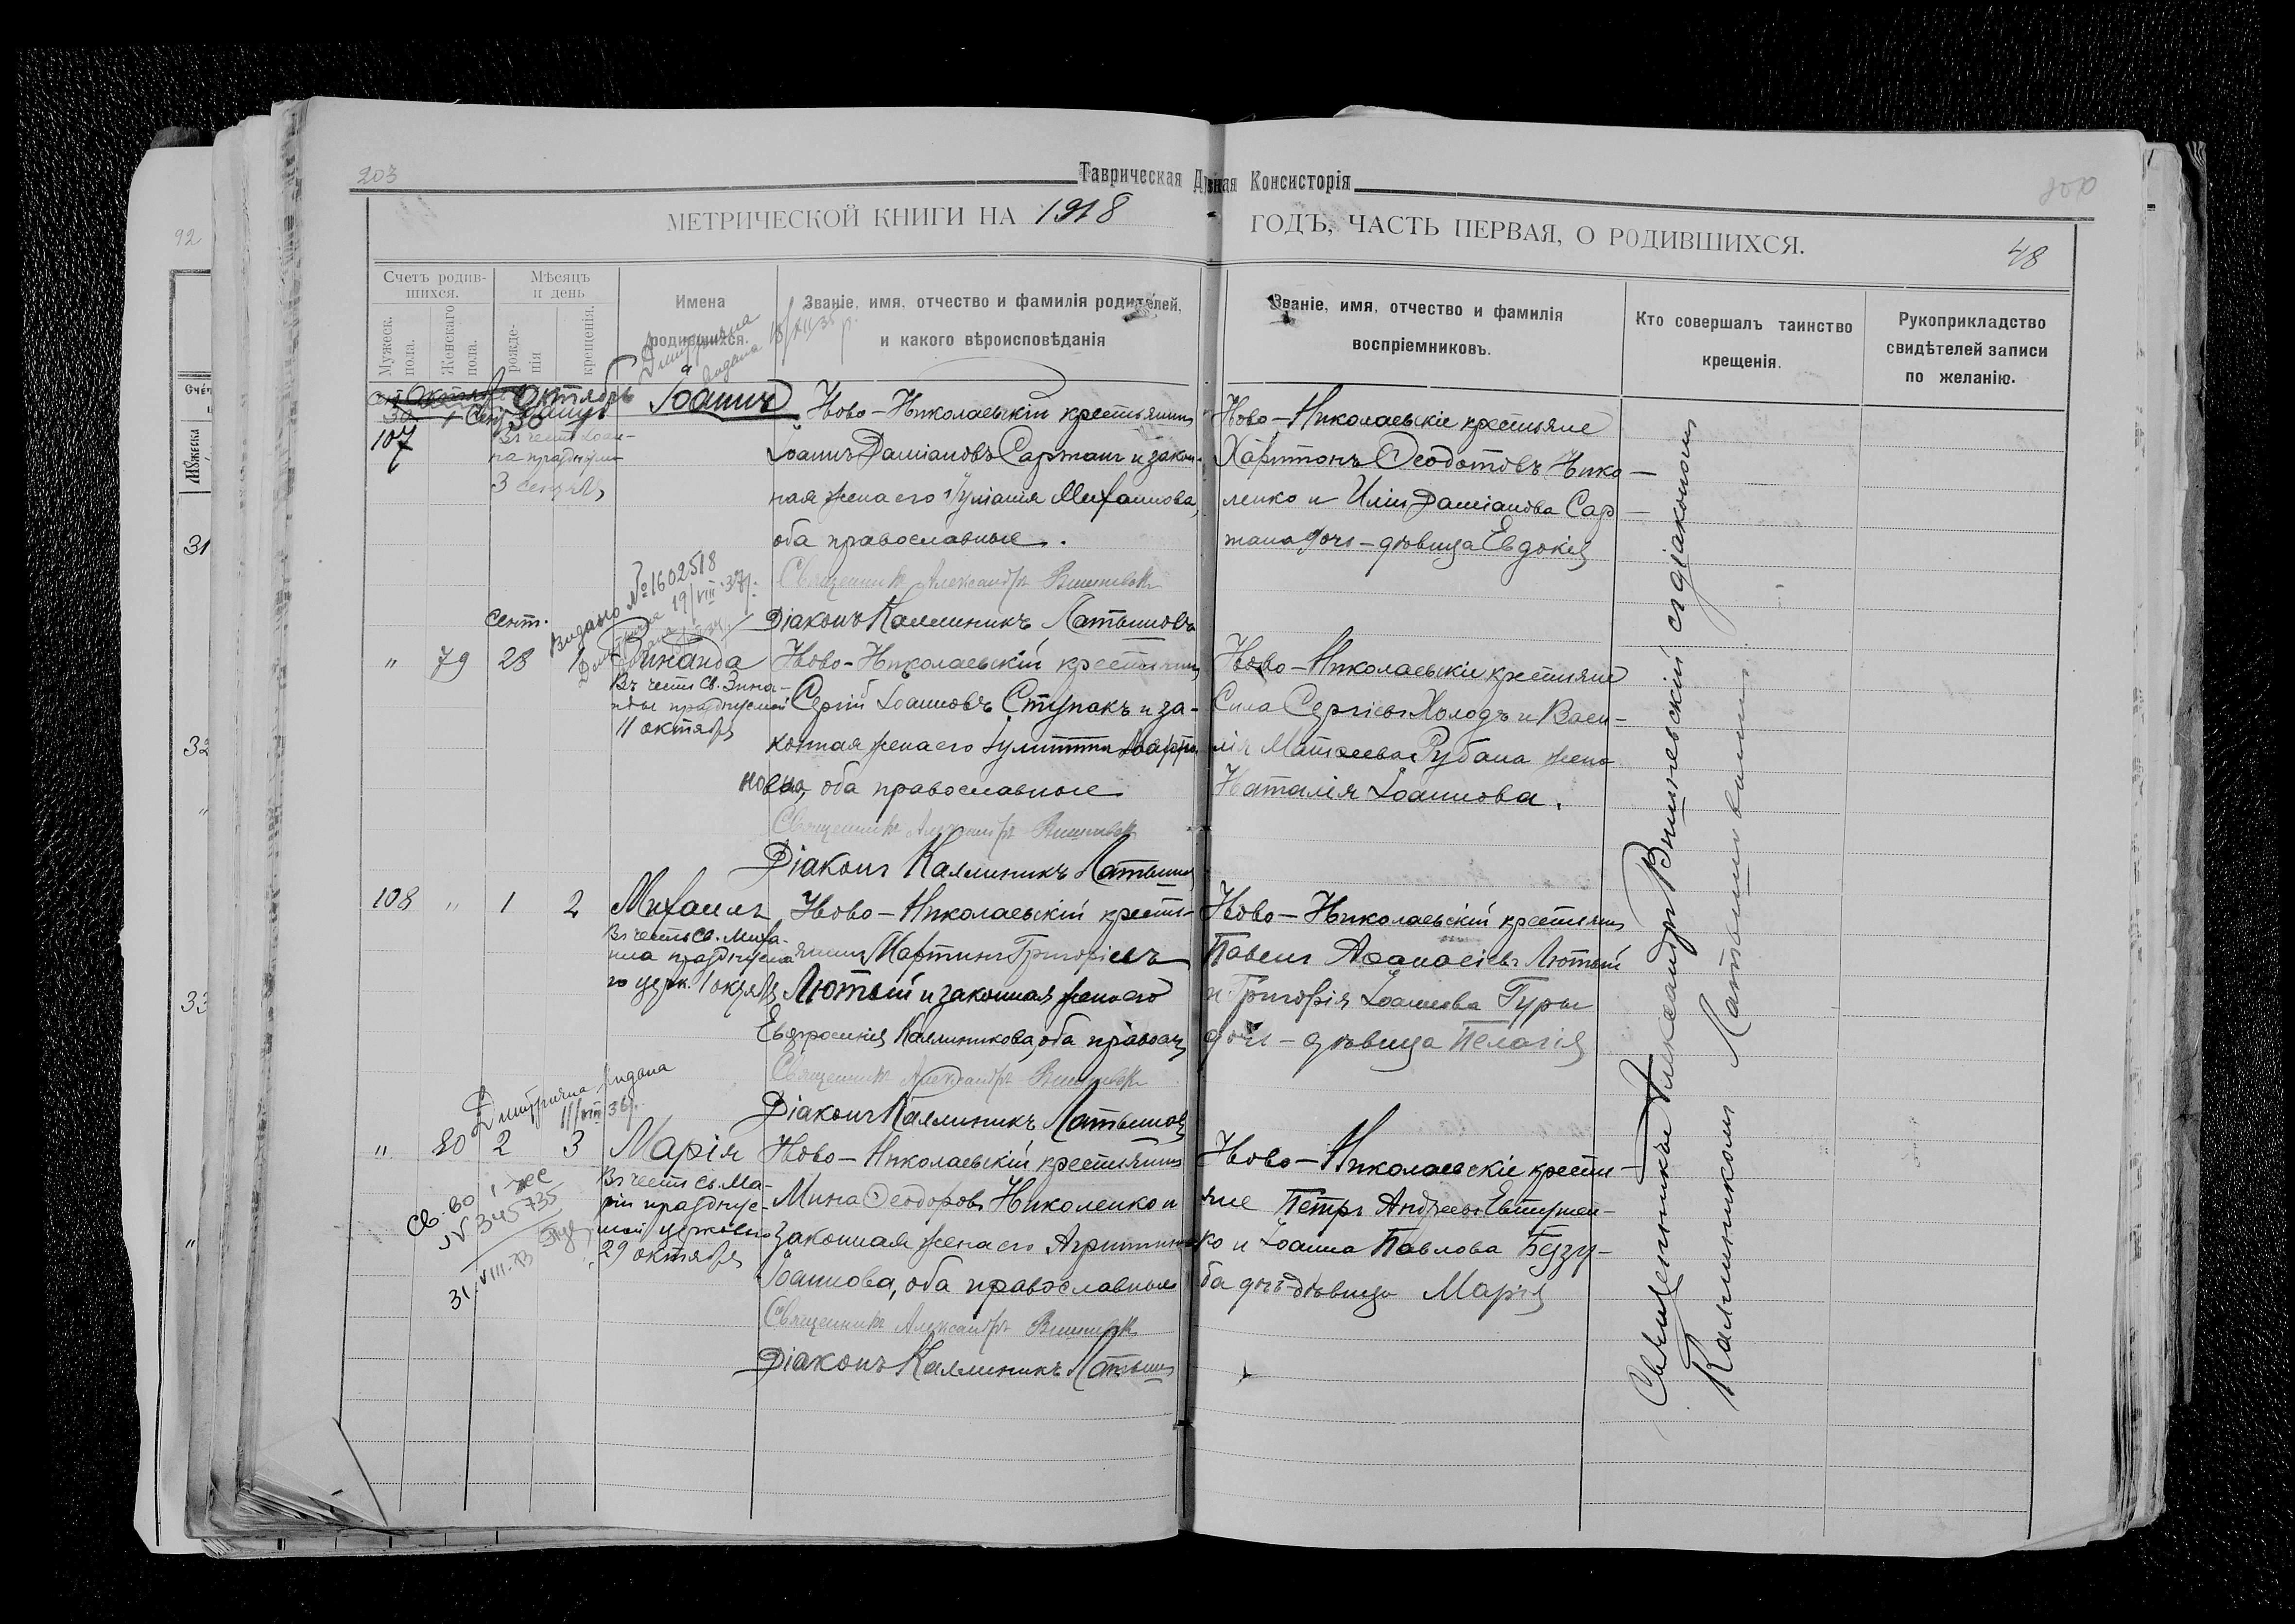 92
Счет
Мужеска
31
32
"
33
"
203
Таврическая Д
ная Консисторія
МЕТРИЧЕСКОЙ КНИГИ НА 1918
ГОДЪ, ЧАСТЬ ПЕРВАЯ, О РОДИВШИХСЯ.
48
Счетъ родив-
шихся.
Мужеск. пола.
Женскаго пола.
Мѣсяцъ
и день
рожде-
нія
крещенія.
Имена
родившихся.
Званіе, имя, отчество и фамилія родителей,
и какого вѣроисповѣданія
Званіе, имя, отчество и фамилія
воспріемниковъ.
Кто совершалъ таинство
крещенія.
Рукоприкладство
свидѣтелей записи
по желанію.
Октябрь
107
30
1
Іоаннъ
Въ честь Іоан-
на празднуем
3 сентяб
Ново-Николаевскій крестьянинъ
Іоаннъ Даміановъ Сартанъ и закон-
ная жена его Іуліанія Михаилова,
оба православные.
Священникъ Александръ Вишневскі
Діаконъ Каллиникъ Латышовъ
Ново-Николаевскіе крестьяне
Харитонъ Ѳеодотовъ Нико-
ленко и Иліи Даміанова Сар-
тана дочь-дѣвица Евдокія
Видано №1602518
19/VIII 37р.
Сент.
" 79 28 1 Зинаида
Въ честь Св. Зина-
иды празднуемой
11 октября
Ново-Николаевскій крестьянинъ
Сергій Іоанновъ Ступакъ и за-
конная жена его Іулитта
нова, оба православные
Священникъ Александръ Вишневскі
Діаконъ Каллиникъ Латышовъ
Ново-Николаевскіе крестьяне
Сила Сергіевъ Холодъ и Васи-
лія Матѳеева Рубана жена
Наталія Іоаннова.
108 " 1 2 Михаилъ
Въ честь Св. Миха-
ила празднуема
го церк. 1 октяб
Ново-Николаевскій кресть-
янинъ Мартинъ Григоріевъ
Лютый и законная жена его
Евфросинія Каллиникова, оба правосл
Священникъ Александръ Вишневскі
Діаконъ Каллиникъ Латышовъ
Ново-Николаевскій крестьянинъ
Павелъ Аѳанасіевъ Лютый
и Григорія Іоаннова Гуры
дочь-дѣвица Пелагія
видана
11/VIII 36р.
" 80 2 3 Марія
Въ честь Св. Ма-
ріи праздуе-
мой церковью
29 октября
Св-во 1
№ 345735
31.VIII-
Ново-Николаевскій крестьянинъ
Мина Ѳеодоровъ Николенко и
законная жена его Агриппина
Іоаннова, оба православные
Священникъ Александръ Вишневскі
Діаконъ Каллиникъ Латышов
Ново-Николаевскіе кресть-
яне Петръ Андреевъ Евтушен-
ко и Іоанна Павлова Безу-
ба дочь-дѣвица Марія
Священникъ Александръ Вишневскій съ діакономъ
Каллиникомъ Латышовымъ